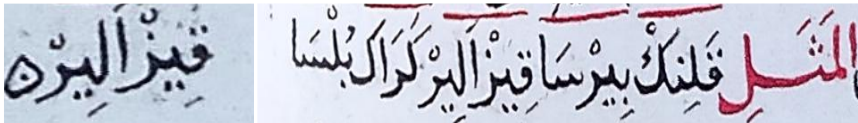 المَثَلِ قَلِنكْ بِيرْسَا قِيزْ اَلِيرْ كَرَاكْ بُلْسَا
قِيزْ اَلِيرْن